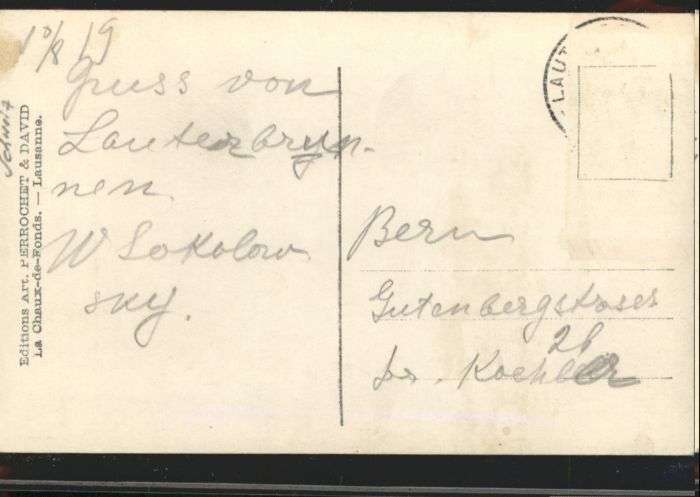 10/8 19
Gruss von
Lauterbrun-
nen
W Sokolow
sky.
Schweiz
Editions Art. PERROCHET & DAVID
La Chaux-de-Fonds. — Lausanne.
LAUT
Bern
Gutenbergstrasse
21